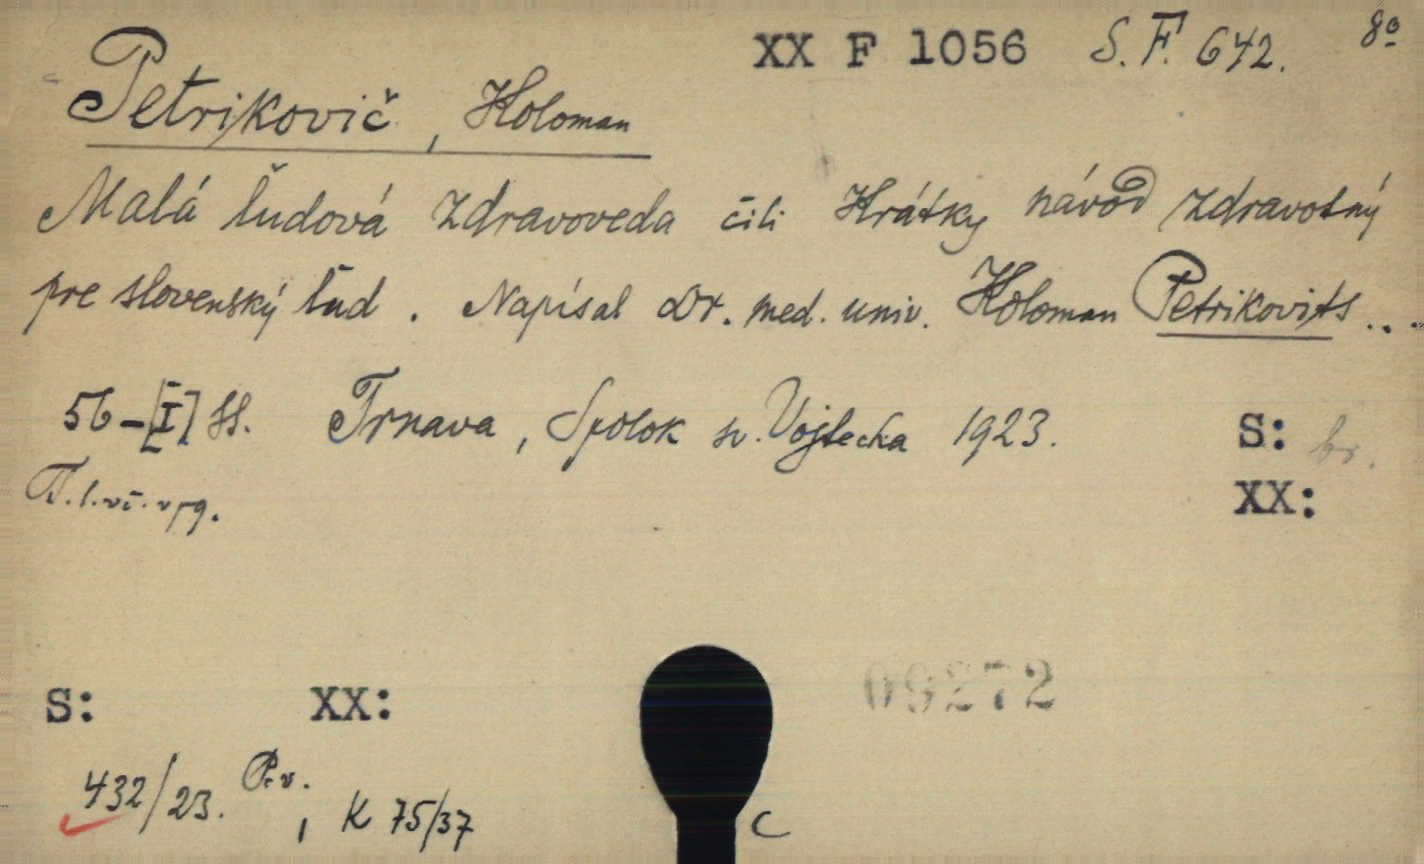 XX F 1056 S. F. 642. 8º
Petrikovič, Koloman
Malá ľudová zdravoveda čili Krátky návod zdravotný
pre slovenský ľud. Napísal Dr. med. univ. Koloman Petrikovits...
56-[I] ss. Trnava, Spolok sv. Vojtecha 1923. S: br.
XX:
T. l.
S: XX:
09272
432/23. P.v., K 75/37
C